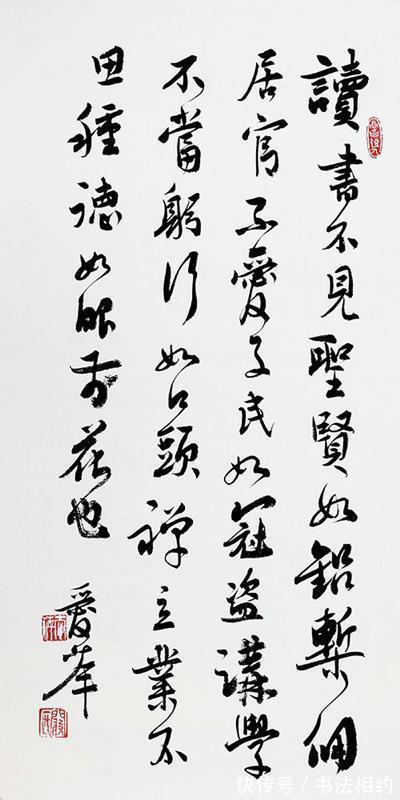 讀書不見聖賢如鉛槧佣
居官不愛子民如冠盜講學
不當躬行如口頭禪立業不
思種德如眼前花也
快传号 / 书法相约